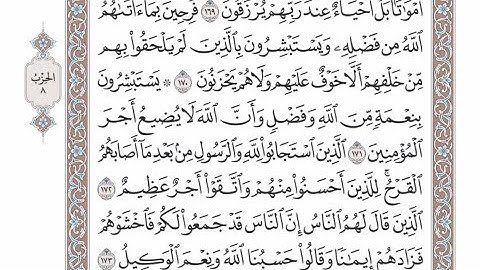 أَمْوَٰتًۢا بَلْ أَحْيَآءٌ عِندَ رَبِّهِمْ يُرْزَقُونَ ١٦٩ فَرِحِينَ بِمَآ ءَاتَىٰهُمُ
ٱللَّهُ مِن فَضْلِهِۦ وَيَسْتَبْشِرُونَ بِٱلَّذِينَ لَمْ يَلْحَقُوا۟ بِهِم
مِّنْ خَلْفِهِمْ أَلَّا خَوْفٌ عَلَيْهِمْ وَلَا هُمْ يَحْزَنُونَ ١٧٠ ۞ يَسْتَبْشِرُونَ
بِنِعْمَةٍ مِّنَ ٱللَّهِ وَفَضْلٍ وَأَنَّ ٱللَّهَ لَا يُضِيعُ أَجْرَ
ٱلْمُؤْمِنِينَ ١٧١ ٱلَّذِينَ ٱسْتَجَابُوا۟ لِلَّهِ وَٱلرَّسُولِ مِنۢ بَعْدِ مَآ أَصَابَهُمُ
ٱلْقَرْحُ ۚ لِلَّذِينَ أَحْسَنُوا۟ مِنْهُمْ وَٱتَّقَوْا۟ أَجْرٌ عَظِيمٌ ١٧٢
ٱلَّذِينَ قَالَ لَهُمُ ٱلنَّاسُ إِنَّ ٱلنَّاسَ قَدْ جَمَعُوا۟ لَكُمْ فَٱخْشَوْهُمْ
فَزَادَهُمْ إِيمَٰنًا وَقَالُوا۟ حَسْبُنَا ٱللَّهُ وَنِعْمَ ٱلْوَكِيلُ ١٧٣
الحِزْبُ
٨